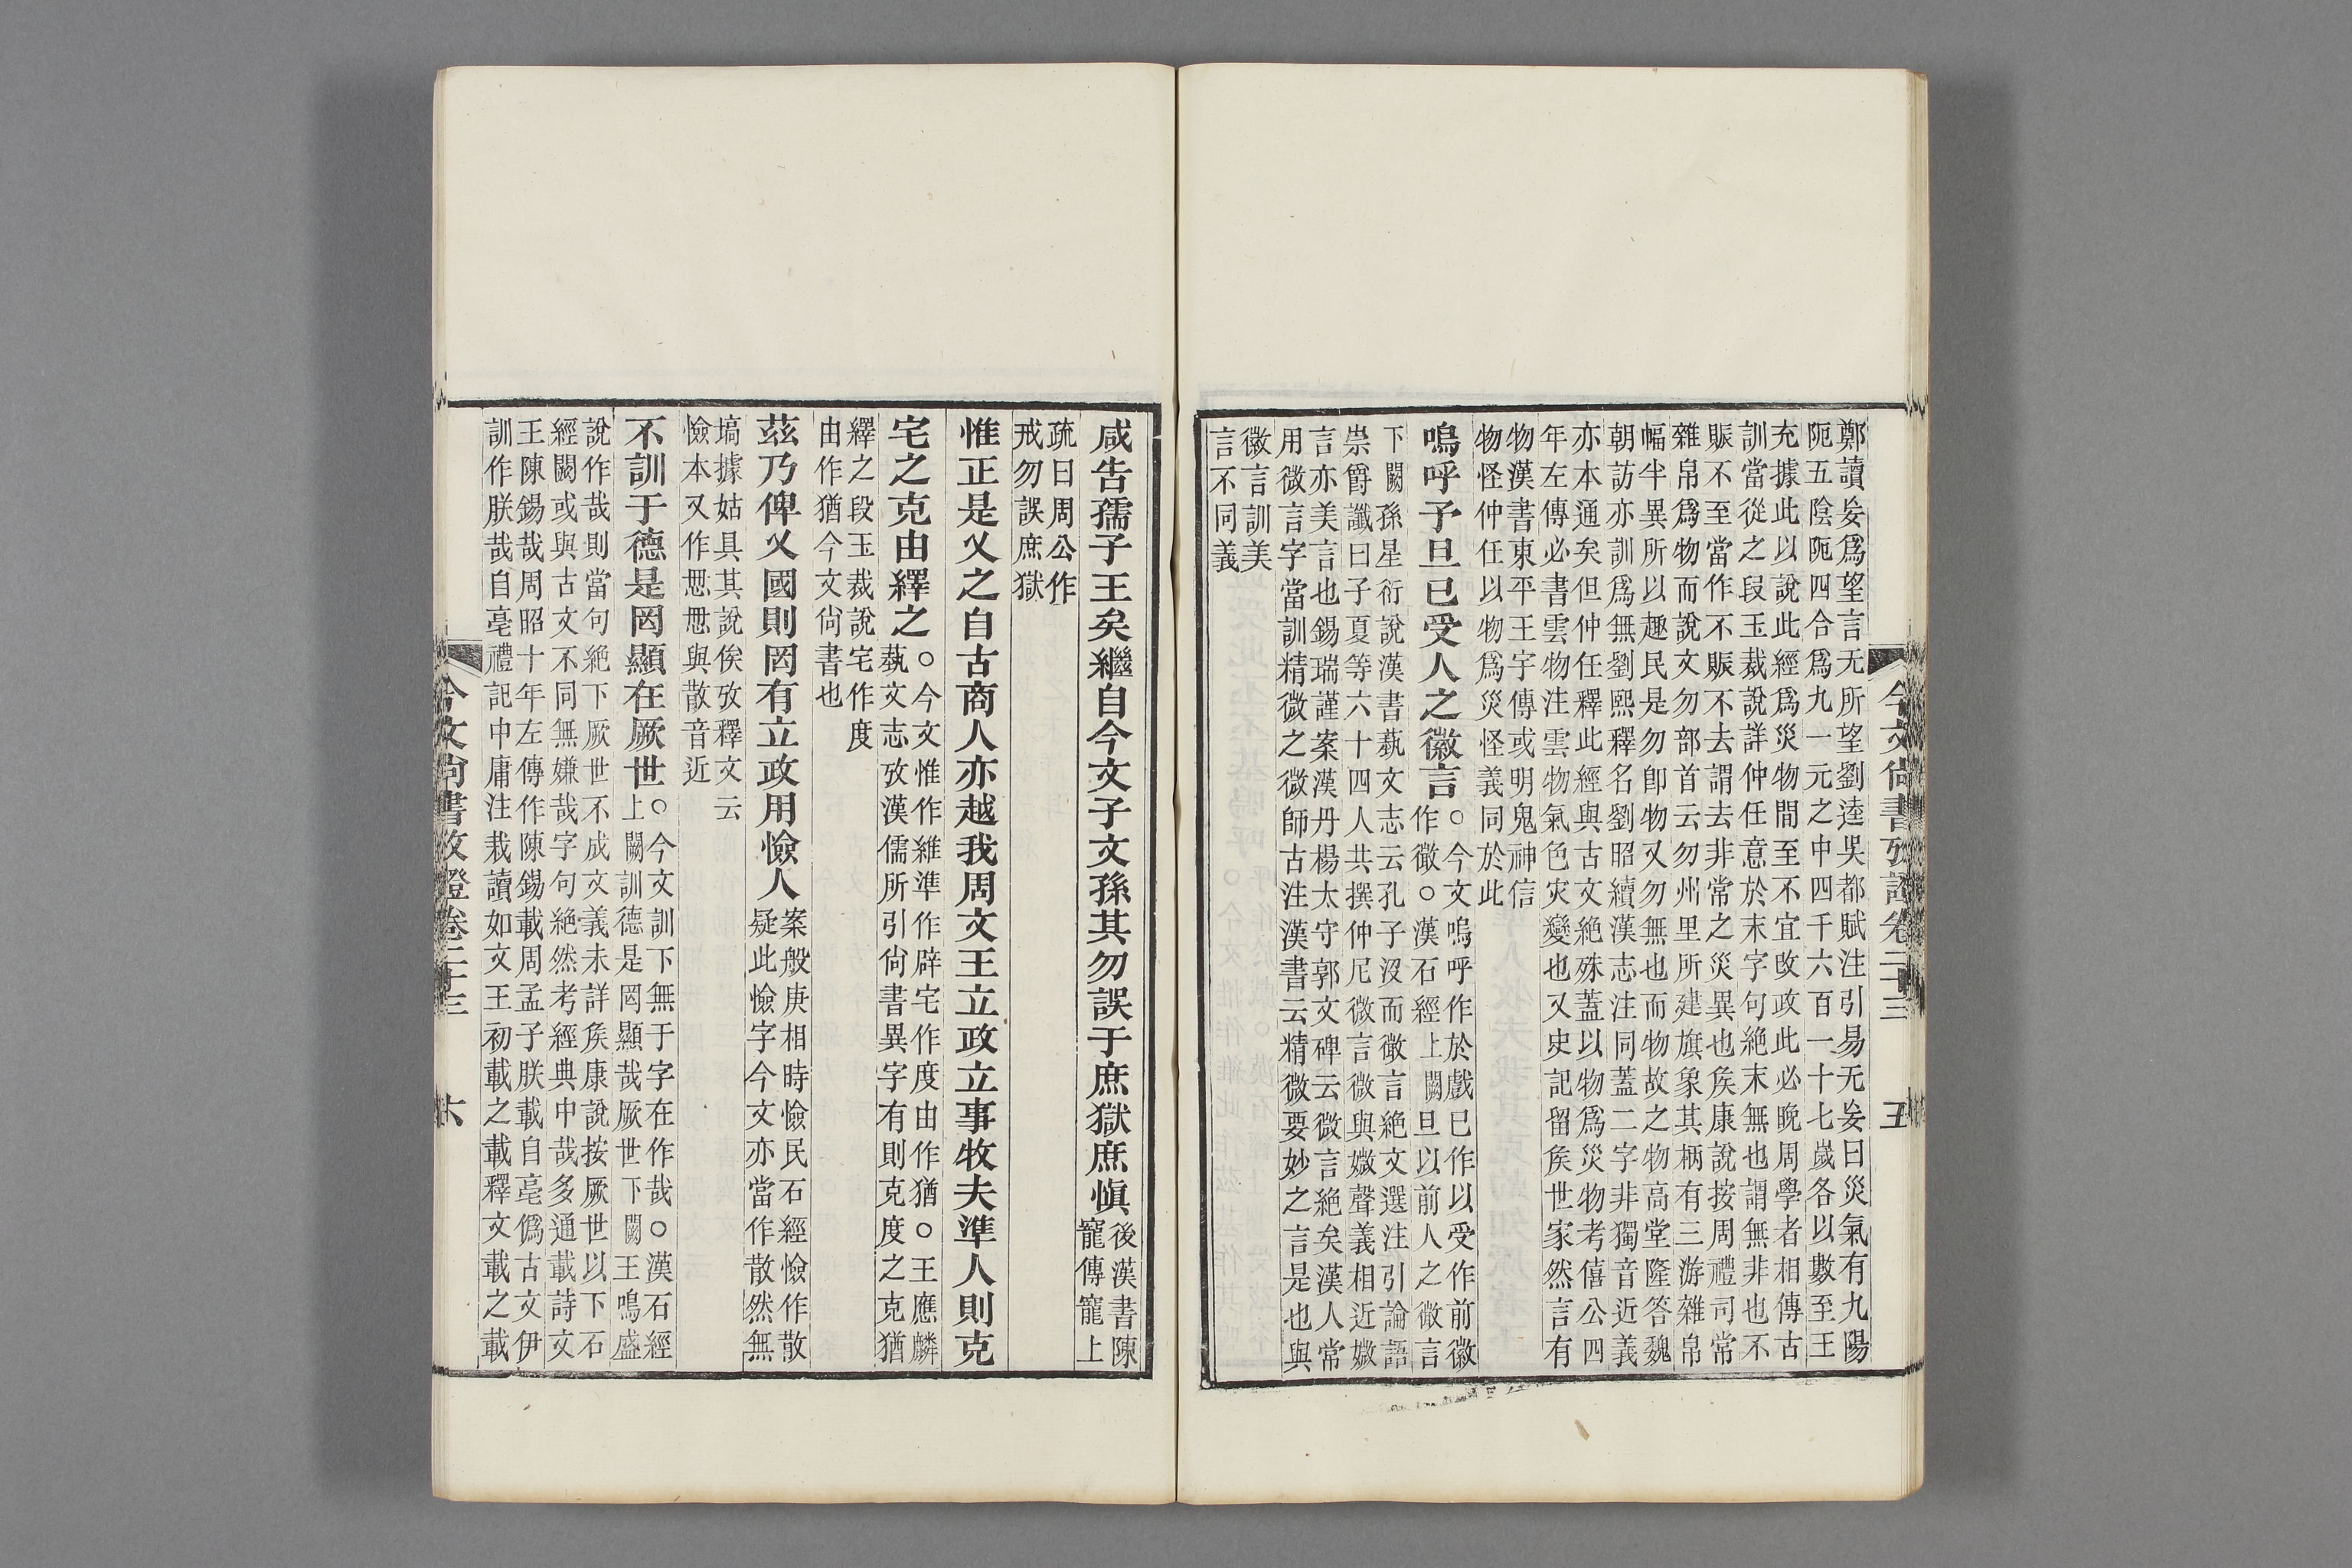 鄭讀妄爲望言无所望劉逵吳都賦注引易无妄曰災氣有九陽
阨五陰阨四合爲九一元之中四千六百一十七歲各以數至王
充據此以說此經爲災物間至不宜改政此必晚周學者相傳古
訓當從之段玉裁說詳仲任意於末字句絶末無也謂無非也不
賑不至當作不賑不去謂去非常之災異也矦康說按周禮司常
雜帛爲物而說文勿部首云勿州里所建旗象其柄有三游雜帛
幅半異所以趣民是勿卽物又勿無也而物故之物高堂隆答魏
朝訪亦訓爲無劉熙釋名劉昭續漢志注同蓋二字非獨音近義
亦本通矣但仲任釋此經與古文絶殊蓋以物爲災物考僖公四
年左傳必書雲物注雲物氣色灾變也又史記留矦世家然言有
物漢書東平王宇傳或明鬼神信
物怪仲任以物爲災怪義同於此
嗚呼予旦已受人之徽言
○今文嗚呼作於戲已作以受作前徽
作微○漢石經上闕旦以前人之微言
下闕孫星衍說漢書蓺文志云孔子沒而微言絶文選注引論語
崇爵讖曰子夏等六十四人共撰仲尼微言微與媺聲義相近媺
言亦美言也錫瑞謹案漢丹楊太守郭文碑云微言絶矣漢人常
用微言字當訓精微之微師古注漢書云精微要妙之言是也與
徽言訓美
言不同義
今文尙書攷證卷二十三
五
咸告孺子王矣繼自今文子文孫其勿誤于庶獄庶愼
後漢書陳
寵傳寵上
疏曰周公作
戒勿誤庶獄
惟正是乂之自古商人亦越我周文王立政立事牧夫準人則克
宅之克由繹之
○今文惟作維準作辟宅作度由作猶○王應麟
蓺文志攷漢儒所引尙書異字有則克度之克猶
繹之段玉裁說宅作度
由作猶今文尙書也
茲乃俾乂國則罔有立政用憸人
案般庚相時憸民石經憸作散
疑此憸字今文亦當作散然無
塙據姑具其說俟攷釋文云
憸本又作思思與散音近
不訓于德是罔顯在厥世
○今文訓下無于字在作哉○漢石經
上闕訓德是罔顯哉厥世下闕王鳴盛
說作哉則當句絶下厥世不成文義未詳矦康說按厥世以下石
經闕或與古文不同無嫌哉字句絶然考經典中哉多通載詩文
王陳錫哉周昭十年左傳作陳錫載周孟子朕載自亳僞古文伊
訓作朕哉自亳禮記中庸注栽讀如文王初載之載釋文載之載
今文尙書攷證卷二十三
六